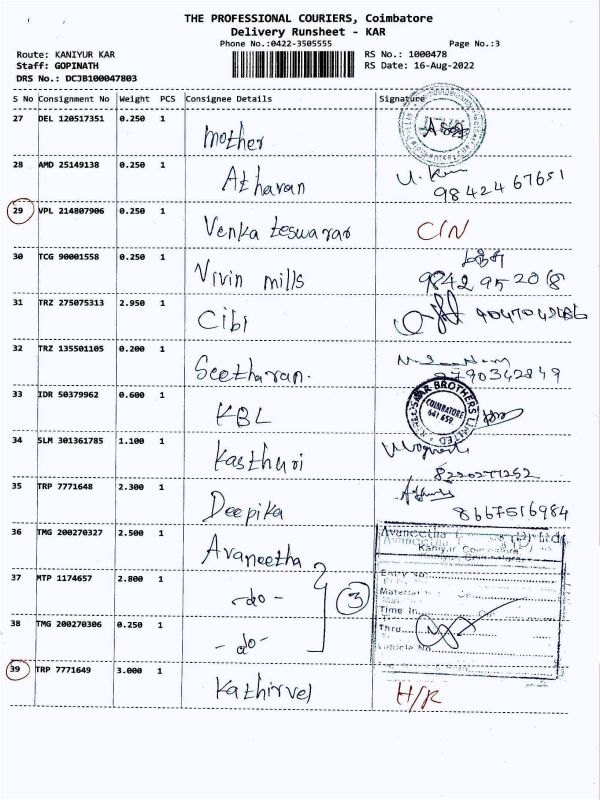 THE PROFESSIONAL COURIERS, Coimbatore
Delivery Runsheet - KAR
Phone No.:0422-3505555 Page No.:3
Route: KANIYUR KAR RS No.: 1000478
Staff: GOPINATH RS Date: 16-Aug-2022
DRS No.: DCJB100047803
S No Consignment No Weight PCS Consignee Details Signature
27 DEL 120517351 0.250 1 Mother
28 AMD 25149138 0.250 1 Atharan
98424 67651
29 VPL 214807906 0.250 1 Venkateswarar C/N
30 TCG 90001558 0.250 1 Vivin mills
9842 95 2018
31 TRZ 275075313 2.950 1 Cibi
32 TRZ 135501105 0.200 1 Seetharan.
33 IDR 50379962 0.600 1 KBL
BROTHERS LIMITED
COIMBATORE
641 659
34 SLM 301361785 1.100 1 Kasthuri
35 TRP 7771648 2.300 1 Deepika
8667516984
36 TMG 200270327 2.500 1 Avaneetha
Avaneetha
Kaniyur Coimbatore
37 MTP 1174657 2.800 1 -do- 3
Entry No:
Material
Time In
38 TMG 200270306 0.250 1 -do-
Thru
Vehicle No
39 TRP 7771649 3.000 1 Kathirvel H/R